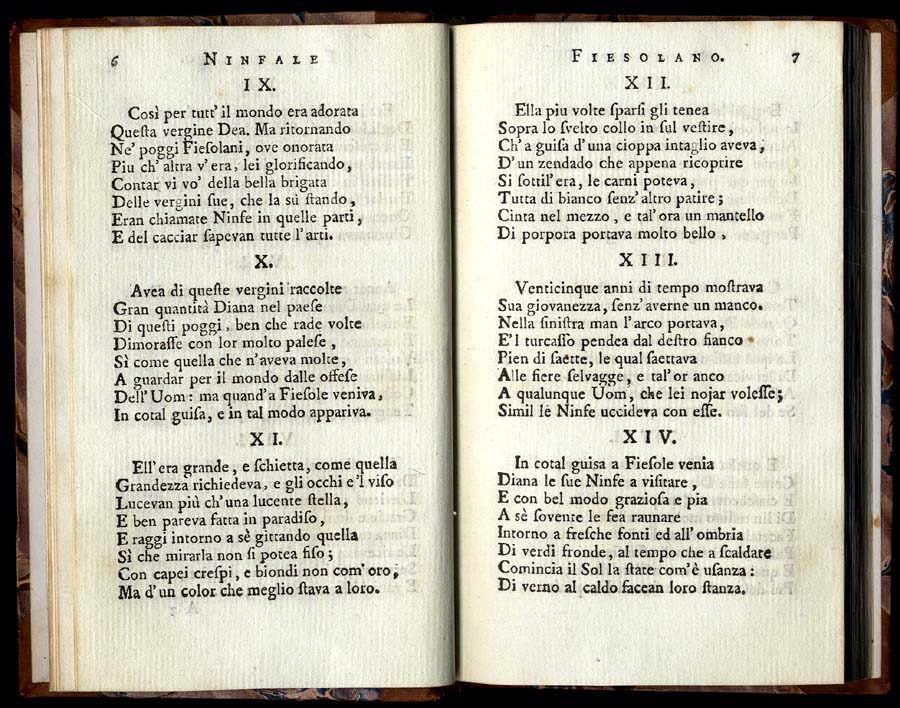 6
NINFALE
IX.
Così per tutt' il mondo era adorata
Queſta vergine Dea. Ma ritornando
Ne' poggi Fieſolani, ove onorata
Piu ch' altra v' era, lei glorificando,
Contar vi vo' della bella brigata
Delle vergini ſue, che la sù ſtando,
Eran chiamate Ninfe in quelle parti,
E del cacciar ſapevan tutte l'arti.
X.
Avea di queſte vergini raccolte
Gran quantità Diana nel paeſe
Di queſti poggi, ben che rade volte
Dimoraſſe con lor molto paleſe,
Sì come quella che n'aveva molte,
A guardar per il mondo dalle offeſe
Dell' Uom: ma quand' a Fieſole veniva,
In cotal guiſa, e in tal modo appariva.
XI.
Ell' era grande, e ſchietta, come quella
Grandezza richiedeva, e gli occhi e 'l viſo
Lucevan più ch' una lucente ſtella,
E ben pareva fatta in paradiſo,
E raggi intorno a sè gittando quella
Sì che mirarla non ſi potea fiſo;
Con capei creſpi, e biondi non com' oro,
Ma d' un color che meglio ſtava a loro.
FIESOLANO.
7
XII.
Ella piu volte ſparſi gli tenea
Sopra lo ſvelto collo in ſul veſtire,
Ch' a guiſa d' una cioppa intaglio aveva,
D' un zendado che appena ricoprire
Si ſottil' era, le carni poteva,
Tutta di bianco ſenz' altro patire;
Cinta nel mezzo, e tal' ora un mantello
Di porpora portava molto bello,
XIII.
Venticinque anni di tempo moſtrava
Sua giovanezza, ſenz' averne un manco.
Nella ſiniſtra man l' arco portava,
E'l turcaſſo pendea dal deſtro fianco
Pien di ſaette, le qual ſaettava
Alle fiere ſelvagge, e tal' or anco
A qualunque Uom, che lei nojar voleſſe;
Simil le Ninfe uccideva con eſſe.
XIV.
In cotal guisa a Fieſole venia
Diana le ſue Ninfe a viſitare,
E con bel modo grazioſa e pia
A sè ſovente le fea raunare
Intorno a freſche fonti ed all' ombria
Di verdi fronde, al tempo che a ſcaldare
Comincia il Sol la ſtate com' è uſanza:
Di verno al caldo facean loro ſtanza.